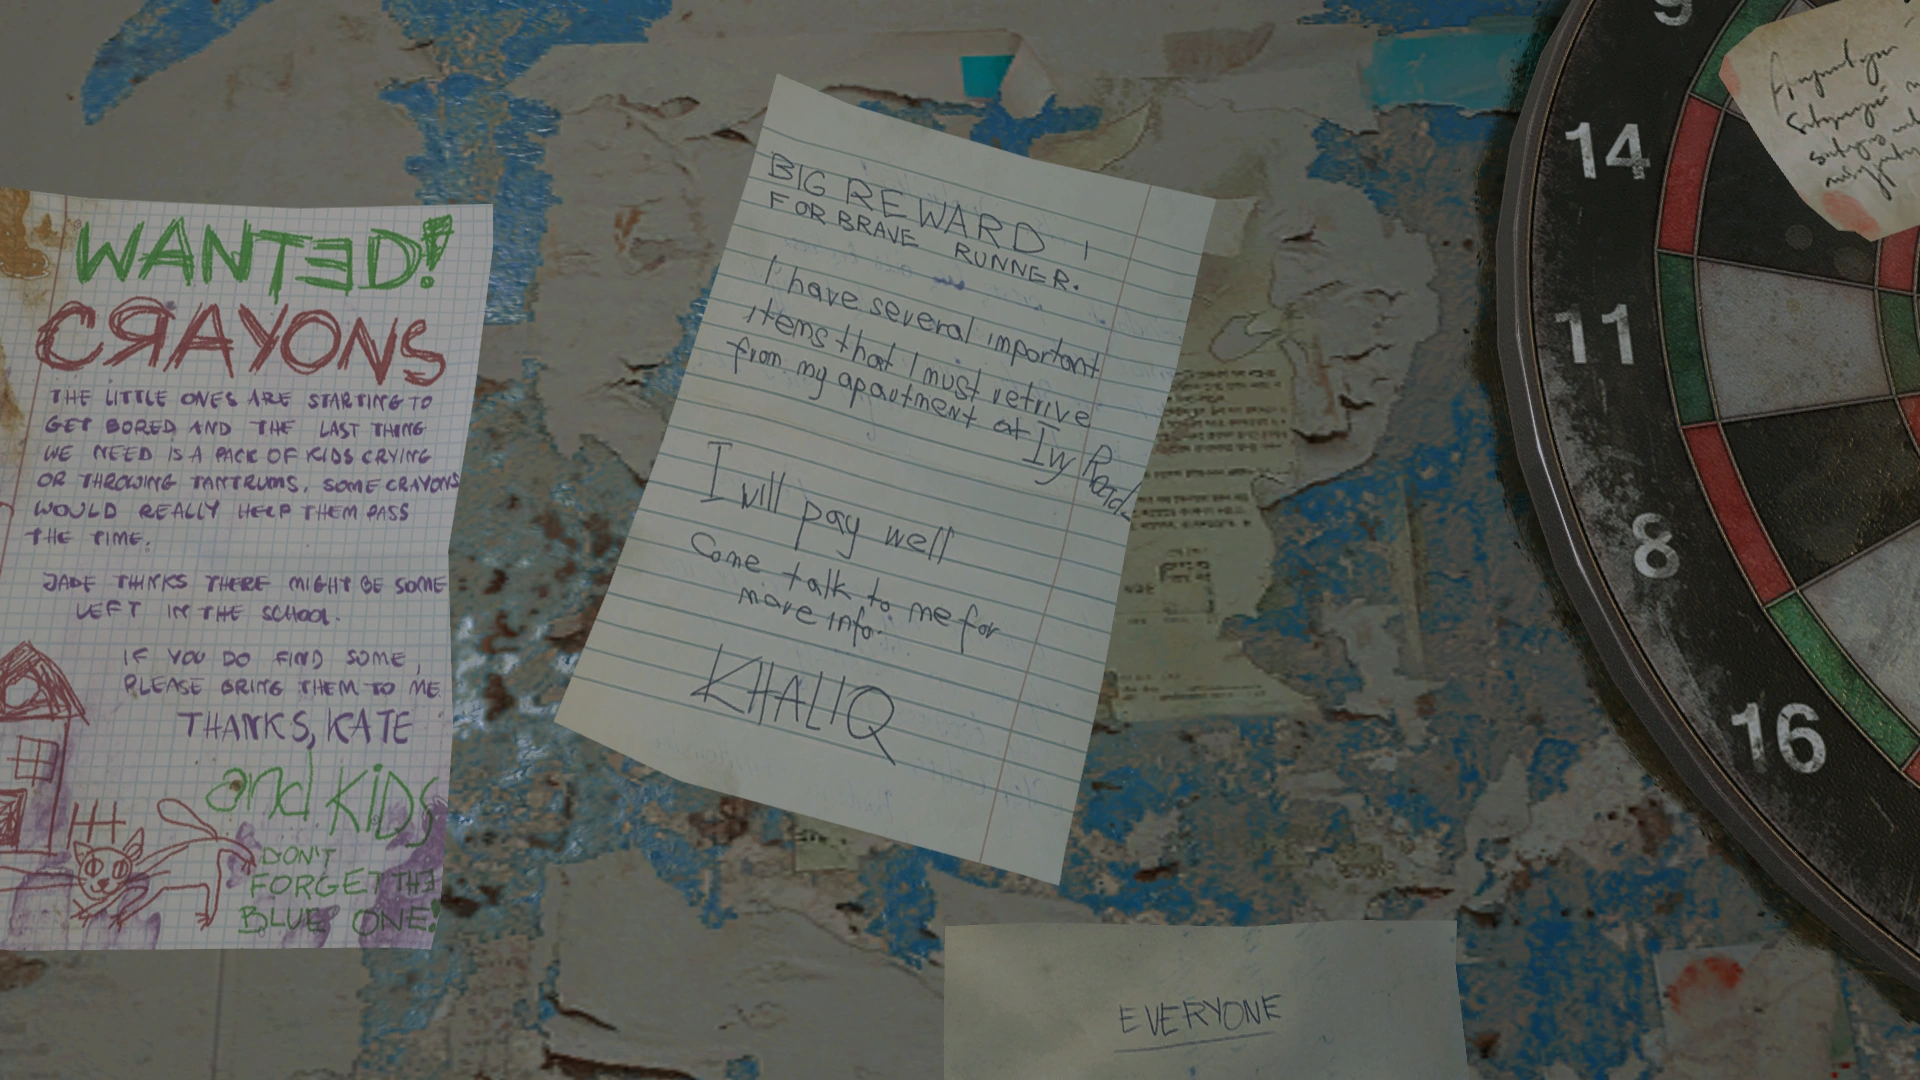 WANTED!
CRAYONS
THE LITTLE ONES ARE STARTING TO
GET BORED AND THE LAST THING
WE NEED IS A PACK OF KIDS CRYING
OR THROWING TANTRUMS. SOME CRAYONS
WOULD REALLY HELP THEM PASS
THE TIME.
JADE THINKS THERE MIGHT BE SOME
LEFT IN THE SCHOOL.
IF YOU DO FIND SOME,
PLEASE BRING THEM TO ME
THANKS, KATE
and KiDS
DON'T
FORGET THE
BLUE ONE!
BIG REWARD !
FOR BRAVE RUNNER.
I have several important
items that I must retrive
from my apartment at Ivy Road.
I will pay well
Come talk to me for
more info.
KHALIQ
EVERYONE
9
14
11
8
16